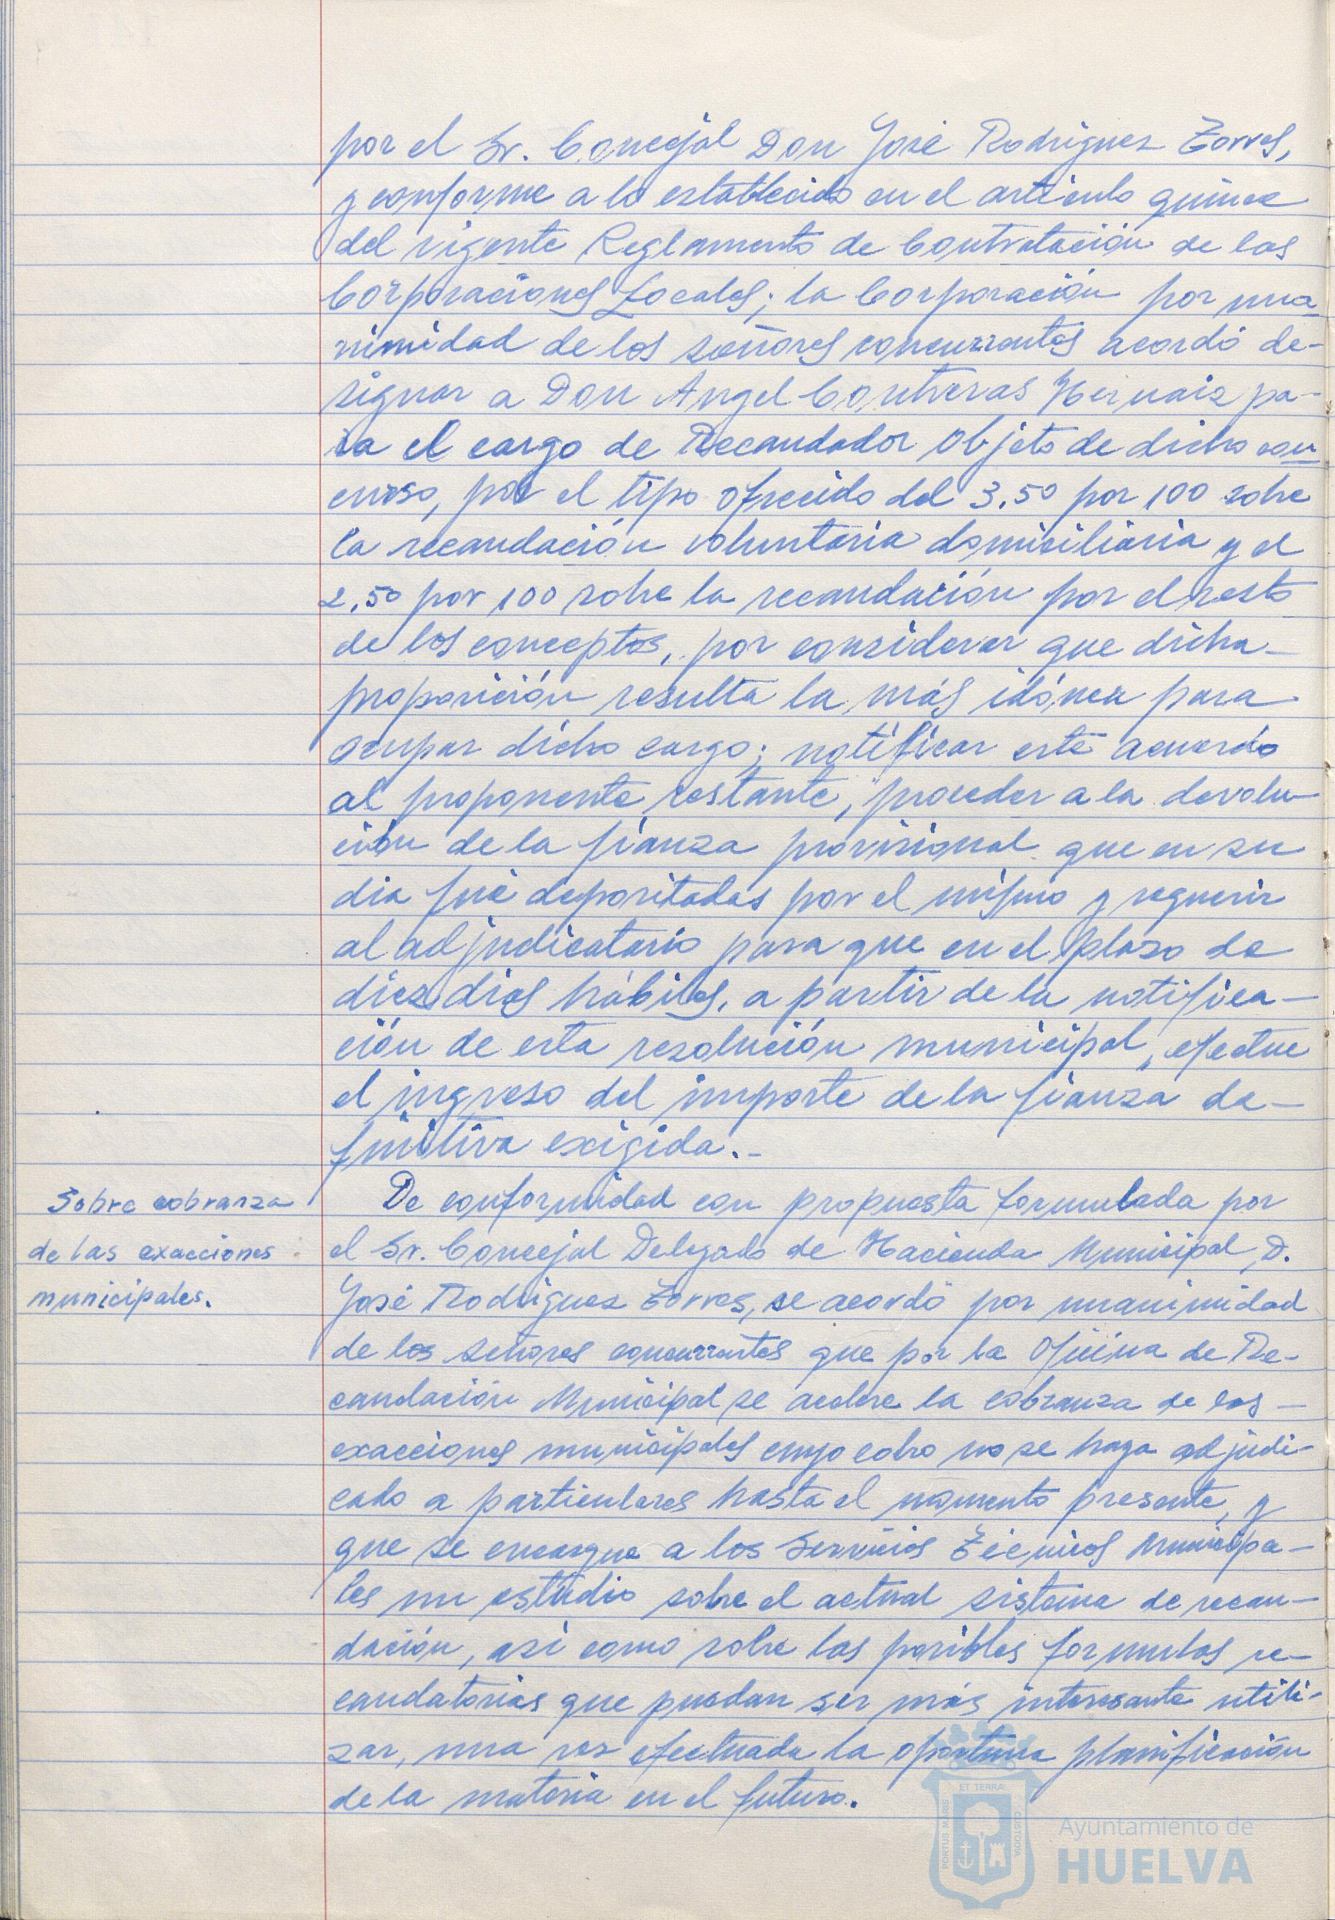 por el Sr. Concejal Don José Rodríguez Torres,
y conforme a lo establecido en el artículo quince
del vigente Reglamento de Contratación de las
Corporaciones Locales; la Corporación por una
nimidad de los señores concurrentes acordó de-
signar a Don Angel Contreras Hernaiz pa-
ra el cargo de Recaudador objeto de dicho con
curso, por el tipo ofrecido del 3,50 por 100 sobre
la recaudación voluntaria domiciliaria y el
2,50 por 100 sobre la recaudación por el resto
de los conceptos, por considerar que dicha
proposición resulta la más idónea para
ocupar dicho cargo; notificar este acuerdo
al proponente restante, proceder a la devolu-
ción de la fianza provisional que en su
dia fué depositadas por el mismo y requerir
al adjudicatario para que en el plazo de
diez dias hábiles, a partir de la notifica-
ción de esta resolución municipal, efectue
el ingreso del importe de la fianza de-
finitiva exigida.-
Sobre cobranza
de las exacciones
municipales.
De conformidad con propuesta formulada por
el Sr. Concejal Delegado de Hacienda Municipal, D.
José Rodriguez Torres, se acordó por unanimidad
de los señores concurrentes que por la Oficina de Re-
caudación Municipal se acelere la cobranza de las
exacciones municipales cuyo cobro no se haya adjudi-
cado a particulares hasta el momento presente, y
que se encargue a los Servicios Técnicos Municipa-
les un estudio sobre el actual sistema de recau-
dación, así como sobre las posibles formulas re-
caudatorias que puedan ser más interesante utili-
zar, una vez efectuada la oportuna planificación
de la materia en el futuro.
ET TERRAE
PORTUS MARIS
CUSTODIA
Ayuntamiento de
HUELVA